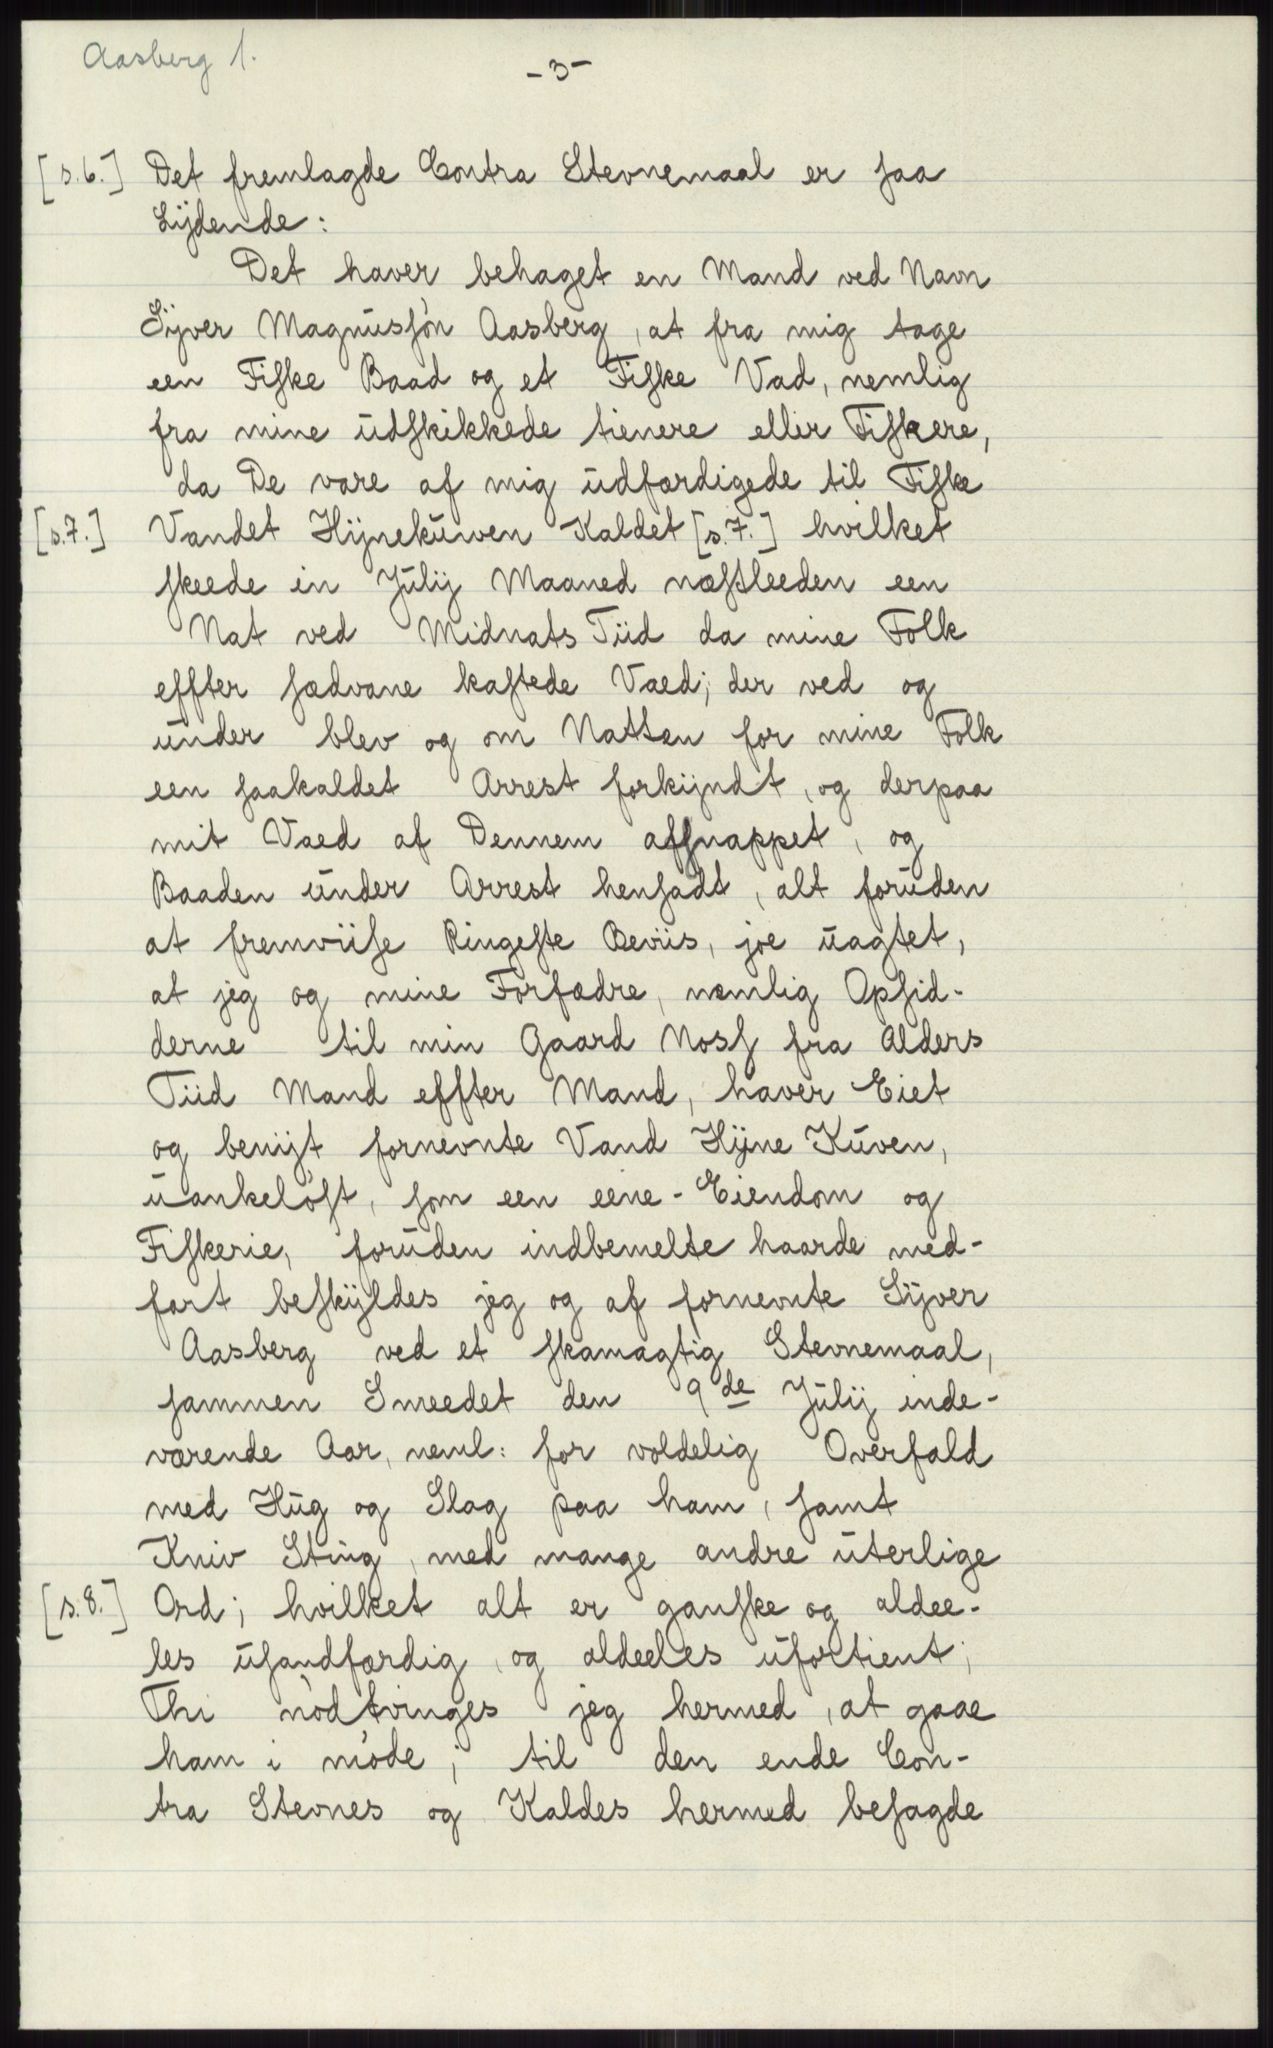 Aasberg 1.
- 3 -
[s.6.] Det fremlagde Contra Stevnemaal er saa
Lydende:
Det haver behaget en Mand ved Navn
Syver Magnussøn Aasberg, at fra mig tage
een Fiske Baad og et Fiske Vad, nemlig
fra mine udskikkede tienere eller Fiskere,
da De vare af mig udfærdigede til Fiske
[s.7.] Vandet Hynekuwen Kaldet [s.7.] hvilket
skeede in Julij Maaned næstleeden een
Nat ved Midnats Tiid da mine Folk
effter sædvane kastede Vaed; der ved og
under blev og om Natten for mine Folk
een saakaldet Arrest forkyndt, og derpaa
mit Vaed af Dennem affsnappet, og
Baaden under Arrest hensadt, alt foruden
at fremviise Ringeste Beviis, joe uagtet,
at jeg og mine Forfædre, nemlig Opsid-
derne til min Gaard Noss fra Alders
Tiid Mand effter Mand, haver Eiet
og benyt fornevnte Vand Hyne Kuven,
uankeløst, som een eene-Eiendom og
Fiskerie, foruden indbemelte haarde med-
fart beskyldes jeg og af fornevnte Syver
Aasberg ved et skamagtig Stevnemaal,
sammen Smeedet den 9de Julij inde-
værende Aar, neml: for voldelig Overfald
med Hug og Slag paa ham, samt
Kniv Sting, med mange andre uterlige
[s.8.] Ord; hvilket alt er ganske og aldee-
les usandfærdig, og aldeeles ufortient;
Thi nødtvinges jeg hermed, at gaae
ham i møde; til den ende Con-
tra Stevnes og Kaldes hermed besagde